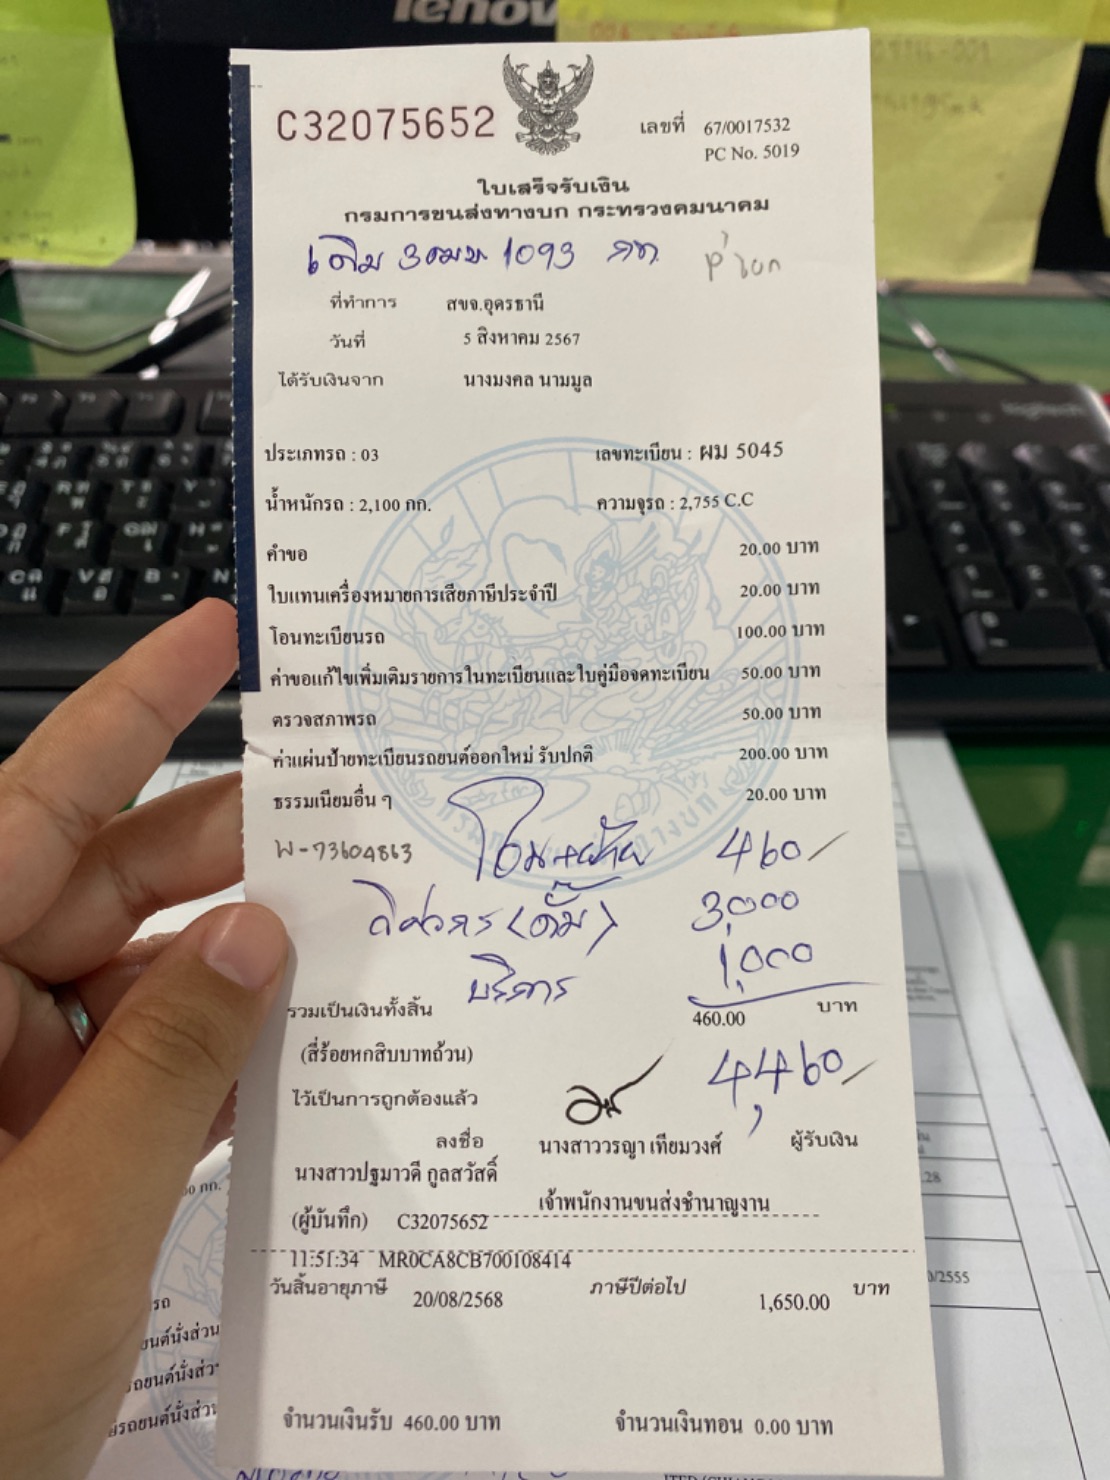 lenov
C32075652
เลขที่ 67/0017532
PC No. 5019
ใบเสร็จรับเงิน
กรมการขนส่งทางบก กระทรวงคมนาคม
เดิม 3ฒฆ 1093 กท.
ที่ทำการ สขจ.อุดรธานี
วันที่ 5 สิงหาคม 2567
ได้รับเงินจาก นางมงคล นามมูล
ประเภทรถ : 03 เลขทะเบียน : ผม 5045
น้ำหนักรถ : 2,100 กก. ความจุรถ : 2,755 C.C
คำขอ 20.00 บาท
ใบแทนเครื่องหมายการเสียภาษีประจำปี 20.00 บาท
โอนทะเบียนรถ 100.00 บาท
ค่าขอแก้ไขเพิ่มเติมรายการในทะเบียนและใบคู่มือจดทะเบียน 50.00 บาท
ตรวจสภาพรถ 50.00 บาท
ค่าแผ่นป้ายทะเบียนรถยนต์ออกใหม่ รับปกติ 200.00 บาท
ธรรมเนียมอื่น ๆ 20.00 บาท
W-73604863 โอน+ย้าย 460/
วิศวกร (ดั๊ม) 3,000
บริการ 1,000
รวมเป็นเงินทั้งสิ้น 460.00 บาท
(สี่ร้อยหกสิบบาทถ้วน) 4,460/
ไว้เป็นการถูกต้องแล้ว
ลงชื่อ นางสาววรญา เทียมวงศ์ ผู้รับเงิน
นางสาวปฐมาวดี กูลสวัสดิ์
เจ้าพนักงานขนส่งชำนาญงาน
(ผู้บันทึก) C32075652
11:51:34 MR0CA8CB700108414
วันสิ้นอายุภาษี 20/08/2568 ภาษีปีต่อไป 1,650.00 บาท
จำนวนเงินรับ 460.00 บาท จำนวนเงินทอน 0.00 บาท